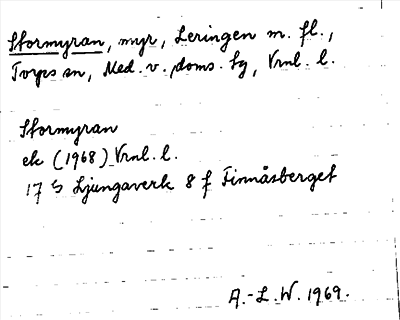 Stormyran, myr, Leringen m. fl.,
Torps sn, Med. v. doms. tg, Vrnl. l.
Stormyran
ek (1968) Vrnl. l.
17 G Ljungaverk 8 f Finnåsberget
A.-L.W. 1969.